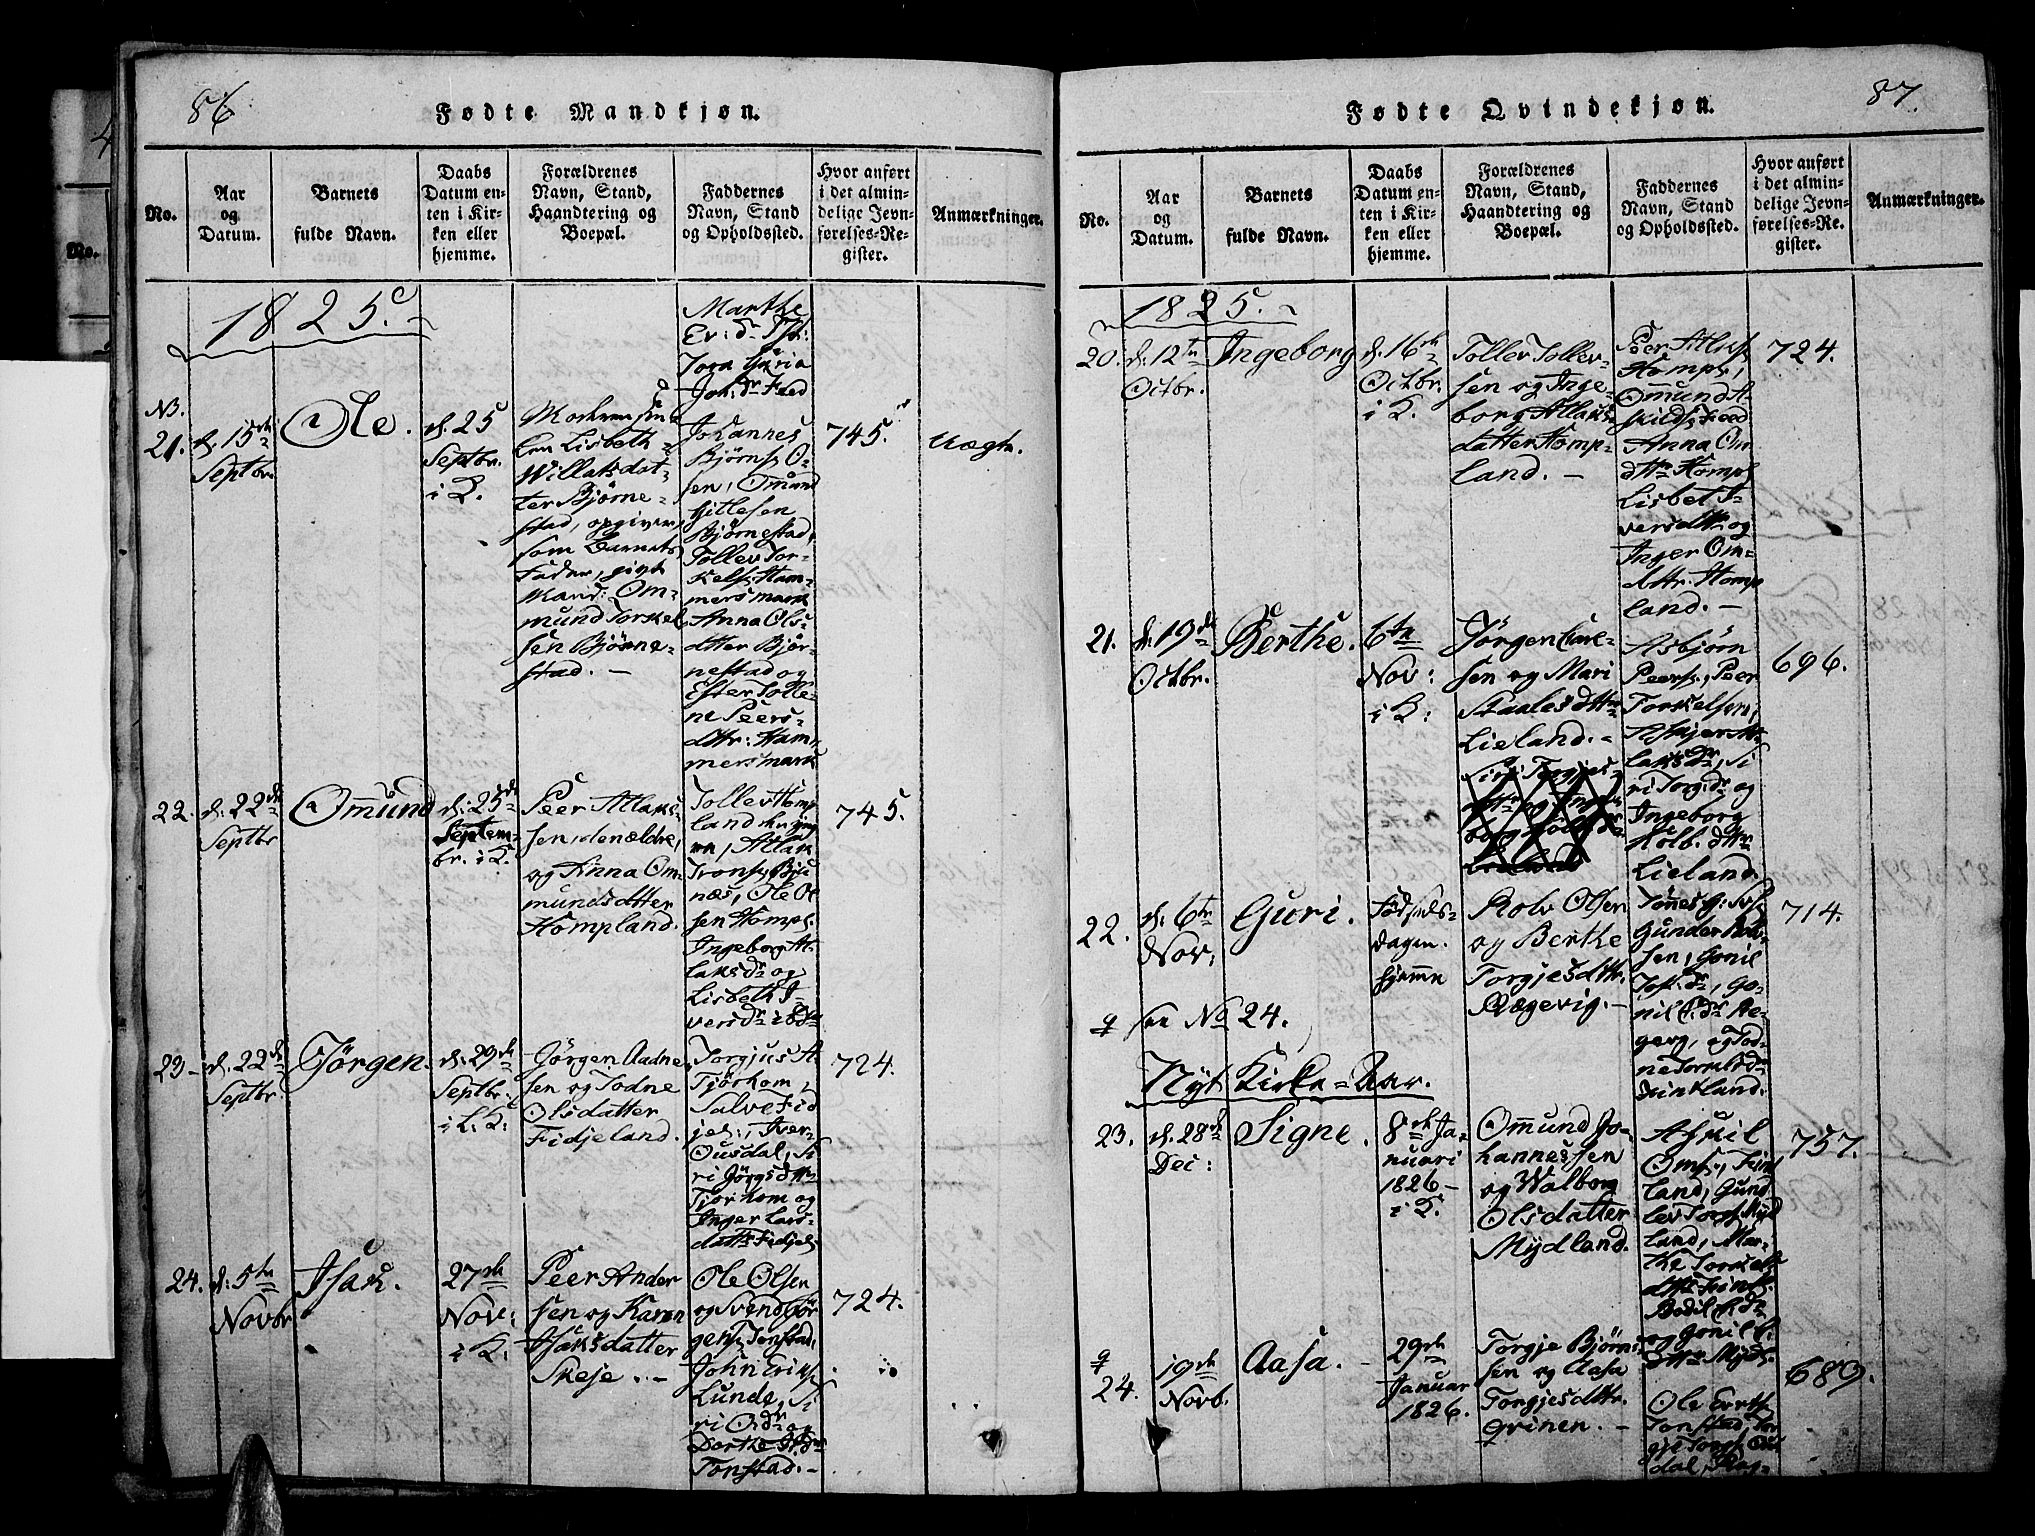 86
Fødte Mandkjøn.
No.
Aar
og
Datum.
Barnets
fulde Navn.
Daabs
Datum en-
ten i Kir-
ken eller
hjemme.
Forældrenes
Navn, Stand,
Haandtering og
Boepæl.
Faddernes
Navn, Stand
og Opholdssted.
Hvor anført
i det almin-
delige Jevn-
førelses-Re-
gister.
Anmærkninger.
1825.
Marthe
Tora
NB.
21.
d. 15de
Septbr.
Ole.
d. 25
Septbr.
i K.
Lisbeth
Willaksdat-
ter Bjørne-
stad, opgiver
som Barnets
Fader, givt
Mand: Om-
mund Torkel
sen Bjørne-
stad. –
Johannes
Bjørns. O-
sen, Omund
Gitlesen
Bjørnestad,
Tollev Tor-
kels. Ham-
mersmark
Anna Ols-
dtter Bjør-
nestad og
Ester Tolle-
ne Peers-
dttr: Ham-
mersmark
745.
Uægte.
22.
d. 22de
Septbr
Omund
d. 25de
Septem-
br. i K.
Peer Atlaks-
sen, den ældre,
og Anna Om-
mundsdtter
Hompland.
Tollev Homp
land den yng
re, Atlak
Trons.
næs, Ole Ol
sen Homps.
Ingeborg At-
laksdr og
Lisbeth I-
versdr
745.
23.
d. 22de
Septbr.
Jørgen.
d. 29de
Septbr.
i L. K.
Jørgen Aadne
sen og Todne
Olsdatter
Fidjeland.
Torgjus A.
Tjørhom,
Salve Fid
jel:, Iver
Ousdal, Si
ri Jørgsdttr
Tjorhom og
Inger Lars-
dattr Fidjel.
724.
24.
d. 5te
Novbr
Isak.
27de
Nov:
i K.
Peer Ander
sen og Karen
Isaksdatter
Skeje. –
Ole Olsen
og Svend Jør
gens. Tonstad,
John Eriks.
Lunde, Si
ri O.dr og
Dorthe
Tonstad. –
724.
87.
Fødte Qvindekjøn.
No.
Aar
og
Datum.
Barnets
fulde Navn.
Daabs
Datum en-
ten i Kir-
ken eller
hjemme.
Forældrenes
Navn, Stand,
Haandtering og
Boepæl.
Faddernes
Navn, Stand
og Opholdssted.
Hvor anført
i det almin-
delige Jevn-
førelses-Re-
gister.
Anmærkninger.
1825.
20.
d. 12te
Octbr.
Ingeborg
d. 16de
Octbr.
i K.
Tollev Tollev-
sen og Inge
borg Atlaks
datter Homp-
land. –
Peer Atlaks.
Hompl,
Omund A-
Anna Om
dttr Hompl
Lisbet I-
versdttr og
Inger Om-
dttr. Homp
land. –
724.
21.
d. 19de
Octbr.
Berthe.
6te
Nov:
i K:
Jørgen Carl-
sen og Mari
Staalesdttr
Lieland. –
Asbjørn
Peers., Peer
Torkelsen,
laksdr, Si
ri Torg.dr og
Ingeborg
Holb.dttr
Lieland.
696.
22.
d. 6te
Nov:
Guri.
Fødsels-
dagen.
hjemme
Rolv Olsen
og Berthe
Torgjesdttr.
Rægevig. –
Gunder Rolv-
sen, Gonil
nil
714.
q se No 24.
Nyt Kirke-Aar.
23.
d. 28de
Dec:
Signe.
8de Ja-
nuari
1826 –
i K.
Omund Jo-
hannessen
og Walborg
Olsdatter
Mydland.
Askil
Oms.,
land, Gund
lev Torg. Myd
land, Mar-
the Torkels
Bodil
og Gonil
757.
q
24.
19de
Novb.
Aasa. –
29de
Januar
1826.
Torgje Bjørn-
sen og Aasa
Torgjesdttr.
Qrinen. –
Ole
Tonstad Tor
gje Torgs. Ou
dal,
689.